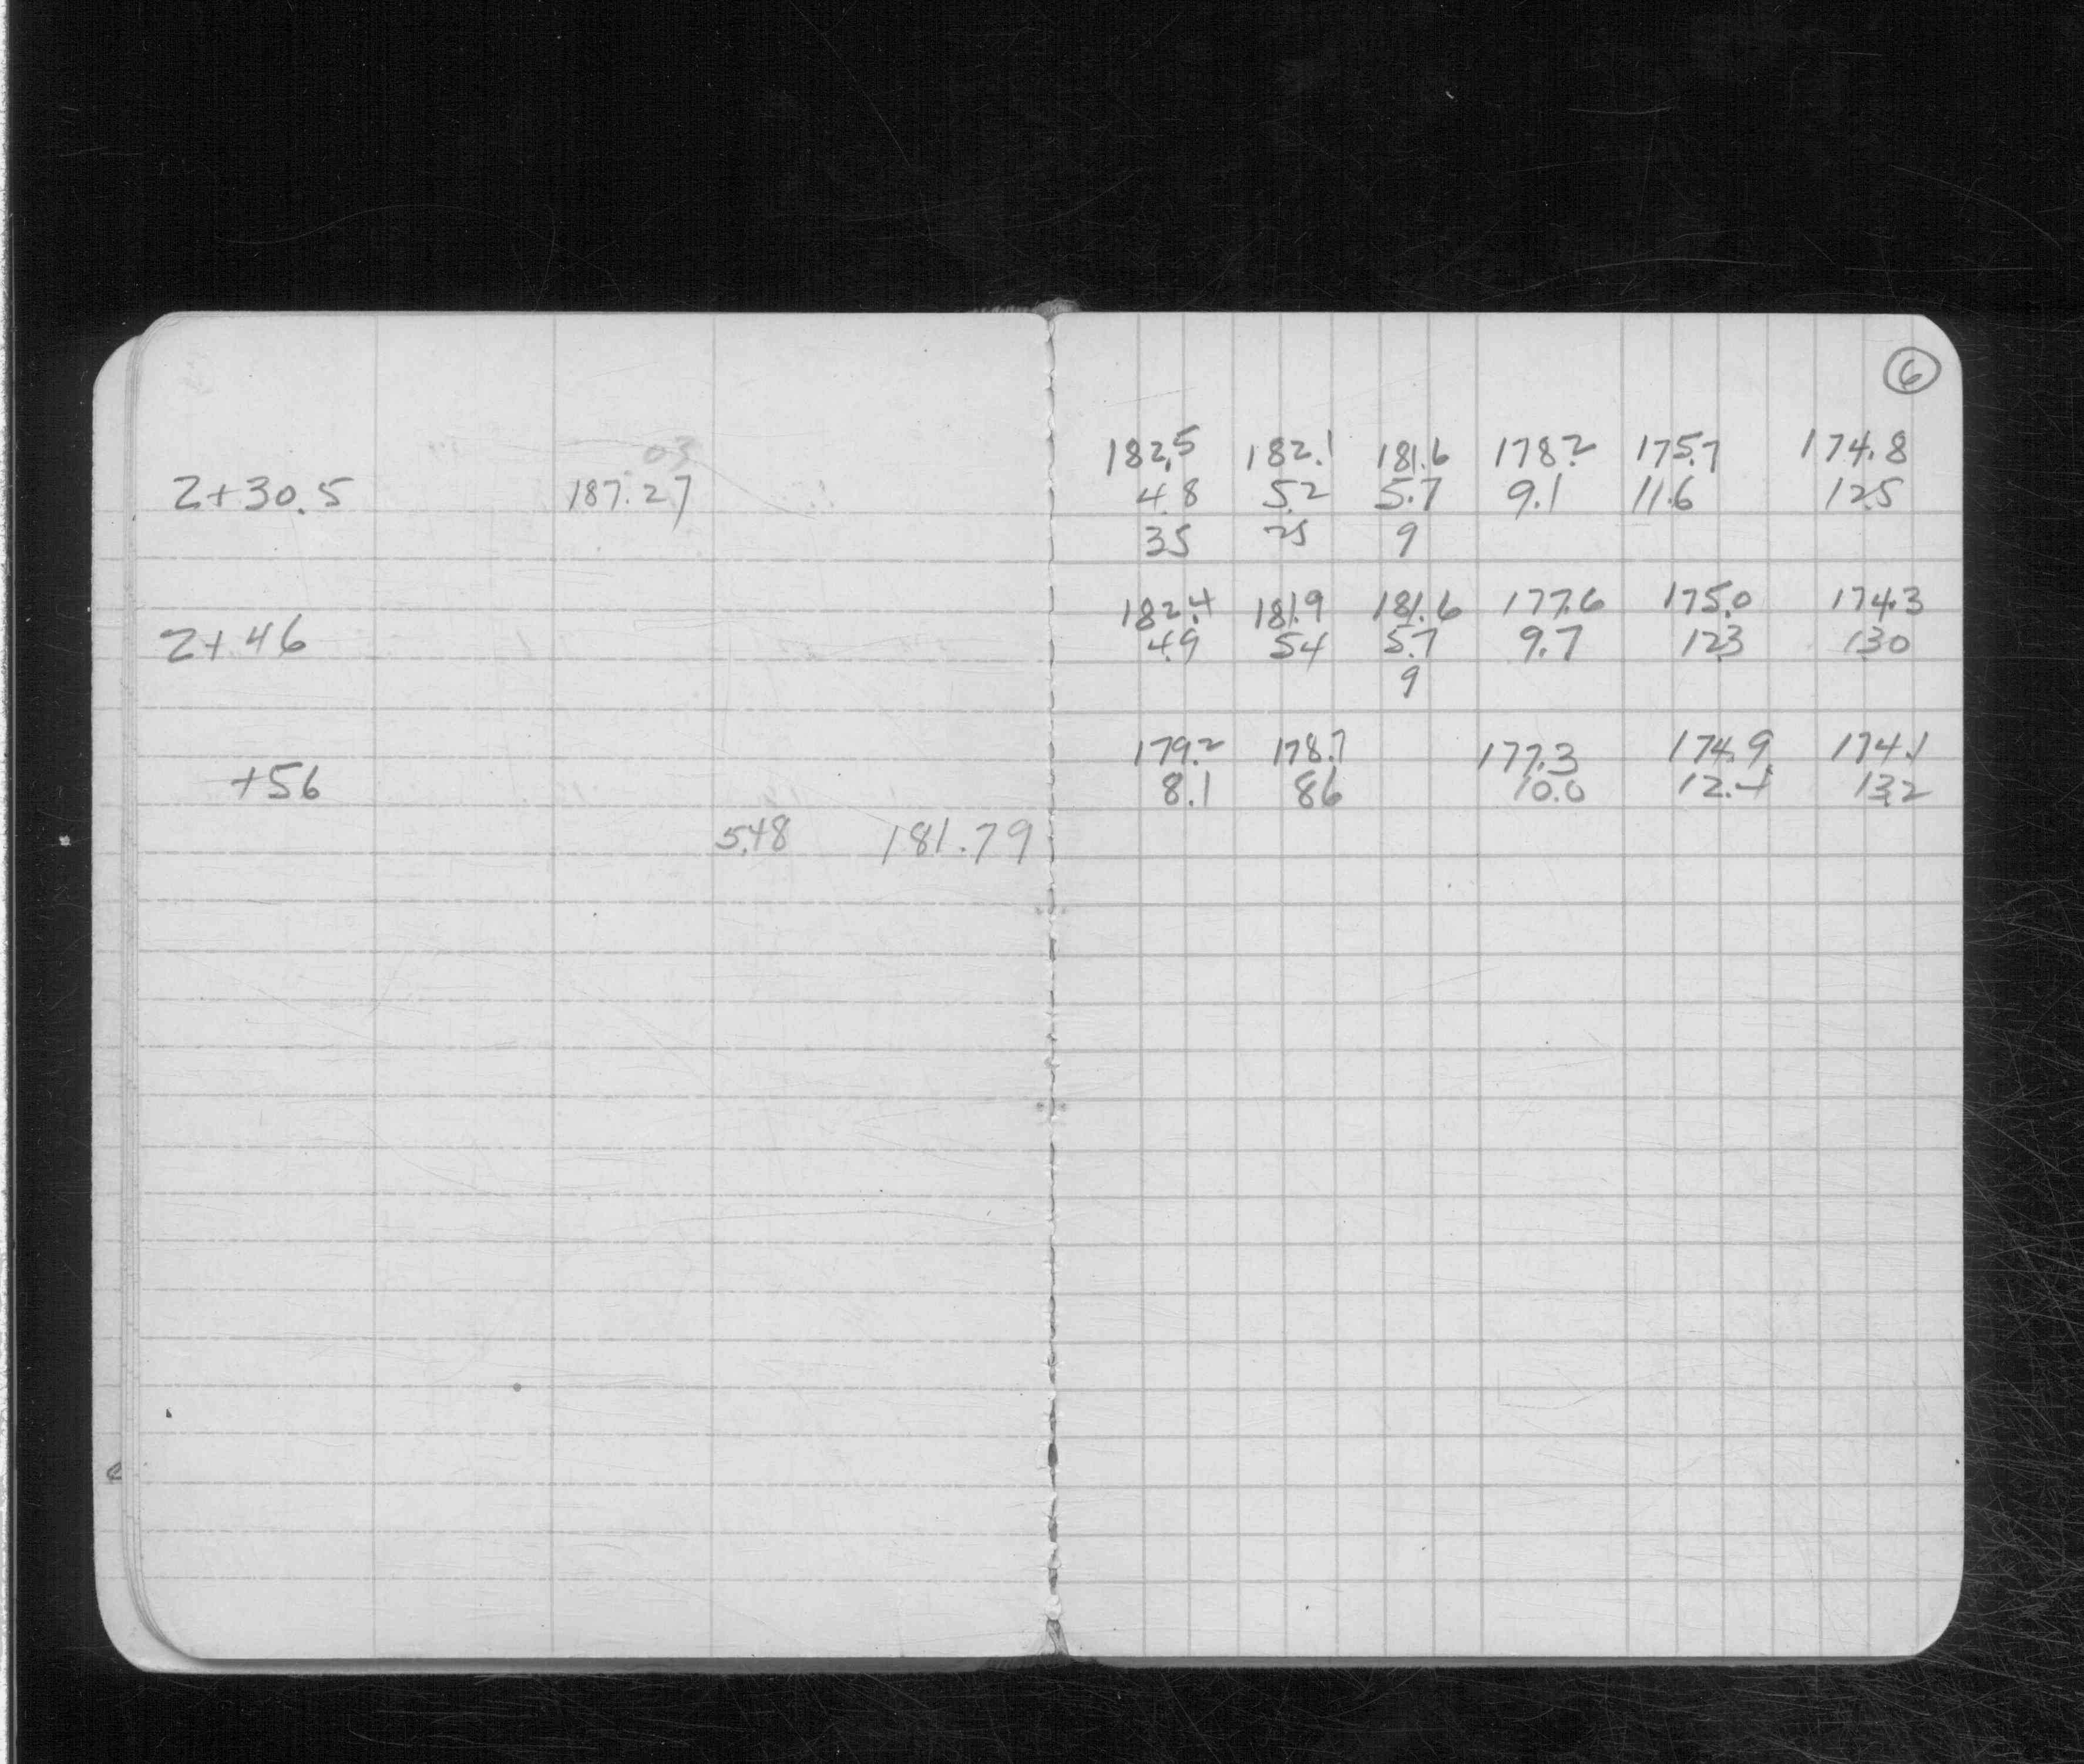 6
03
182.5 182.1 181.6 178.2 175.7 174.8
2+30.5 187.27 4.8 5.2 5.7 9.1 11.6 12.5
35 25 9
182.4 181.9 181.6 177.6 175.0 174.3
2+46 4.9 54 5.7 9.7 12.3 13.0
9
179.2 178.7 177.3 174.9 174.1
+56 8.1 86 10.0 12.4 13.2
5.48 181.79